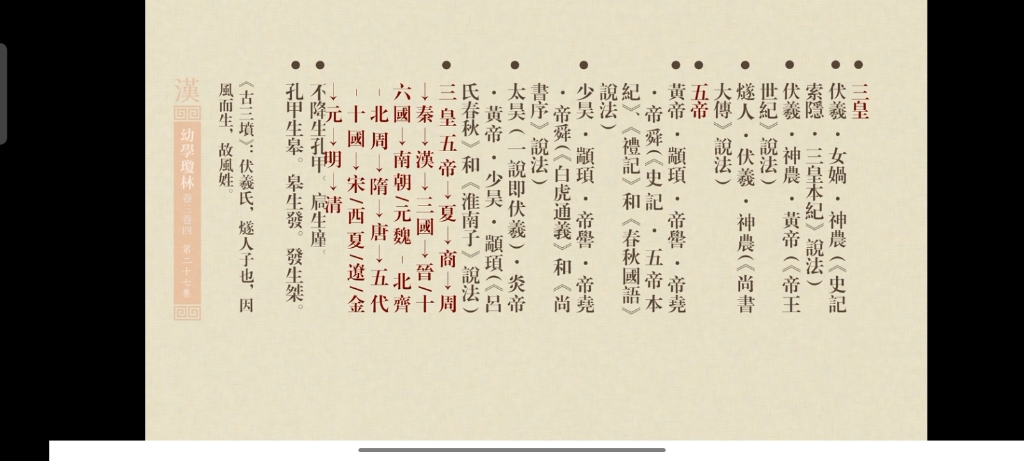 三皇
伏羲・女媧・神農(《史記
索隱・三皇本紀》說法)
伏羲・神農・黃帝(《帝王
世紀》說法)
燧人・伏羲・神農(《尚書
大傳》說法)
五帝
黃帝・顓頊・帝嚳・帝堯
・帝舜(《史記・五帝本
紀》、《禮記》和《春秋國語》
說法)
少昊・顓頊・帝嚳・帝堯
・帝舜(《白虎通義》和《尚
書序》說法)
太昊(一說即伏羲)・炎帝
・黃帝・少昊・顓頊(《呂
氏春秋》和《淮南子》說法)
三皇五帝→夏→商→周
→秦→漢→三國→晉/十
六國→南朝/元魏-北齊
-北周→隋→唐→五代
-十國→宋/西夏/遼/金
→元→明→清
不降生孔甲。扃生廑。
孔甲生皋。皋生發。發生桀。
《古三墳》:伏羲氏,燧人子也,因
風而生,故風姓。
漢
幼學瓊林 卷三卷四 第二十七集